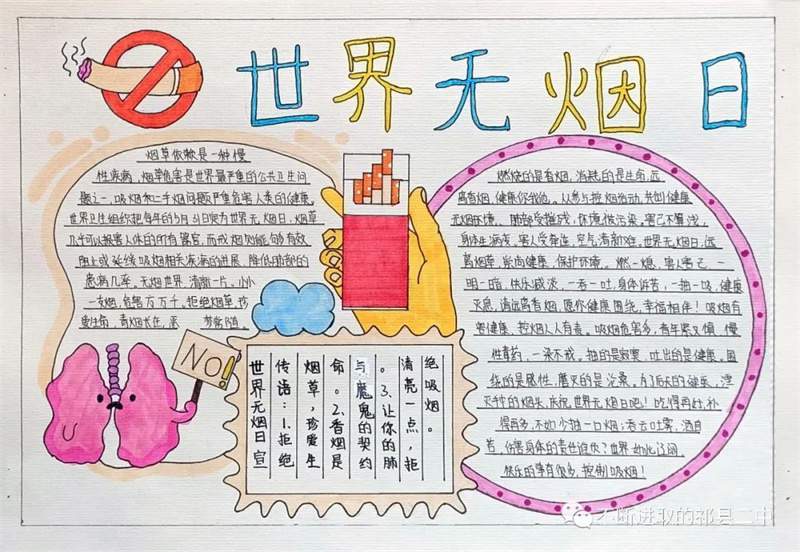 世界无烟日
烟草依赖是一种慢
性疾病，烟草危害是世界最严重的公共卫生问
题之一，吸烟和二手烟问题严重危害人类的健康。
世界卫生组织把每年的5月31日定为世界无烟日，烟草
几乎可以损害人体的所有器官，而戒烟则能够有效
阻止或延缓吸烟相关疾病的进展，降低肺部的
患病几率。无烟世界，清新一片。小小
一支烟，危害万万千。拒绝烟草，珍
爱生命，青烟长在，
梦常随。
NO!
世界无烟日宣
传语：1.拒绝
烟草，珍爱生
命。2.香烟是
与魔鬼的契约
。3.让你的肺
清亮一点，拒
绝吸烟。
燃烧的是香烟，消耗的是生命，远
离香烟，健康你我他。从参与控烟活动，共创健康
无烟环境。肺部受摧残，环境被污染。害己不算浅，
身体生病痰，害人受牵连，空气清新难。世界无烟日，远
离烟草，崇尚健康，保护环境。燃一烟，害人害己，一
明一暗，快乐减淡，一吞一吐，身体诉苦，一抽一吸，健康
灭息，请远离香烟，愿你健康围绕，幸福相伴！吸烟有
害健康，控烟人人有责。吸烟危害多，青年
慢
性毒药，一染不戒。抽的是寂寞，吐出的是健康。
的是感性，磨灭的是
为了后天的健康，
灭手中的烟头，庆祝世界无烟日吧！吃得再好，补
得再多，不如少抽一口烟；吞云吐雾，
伤害身体的责任谁负？世界如此
快乐的事有很多，控制吸烟！
不断进取的祁县二中